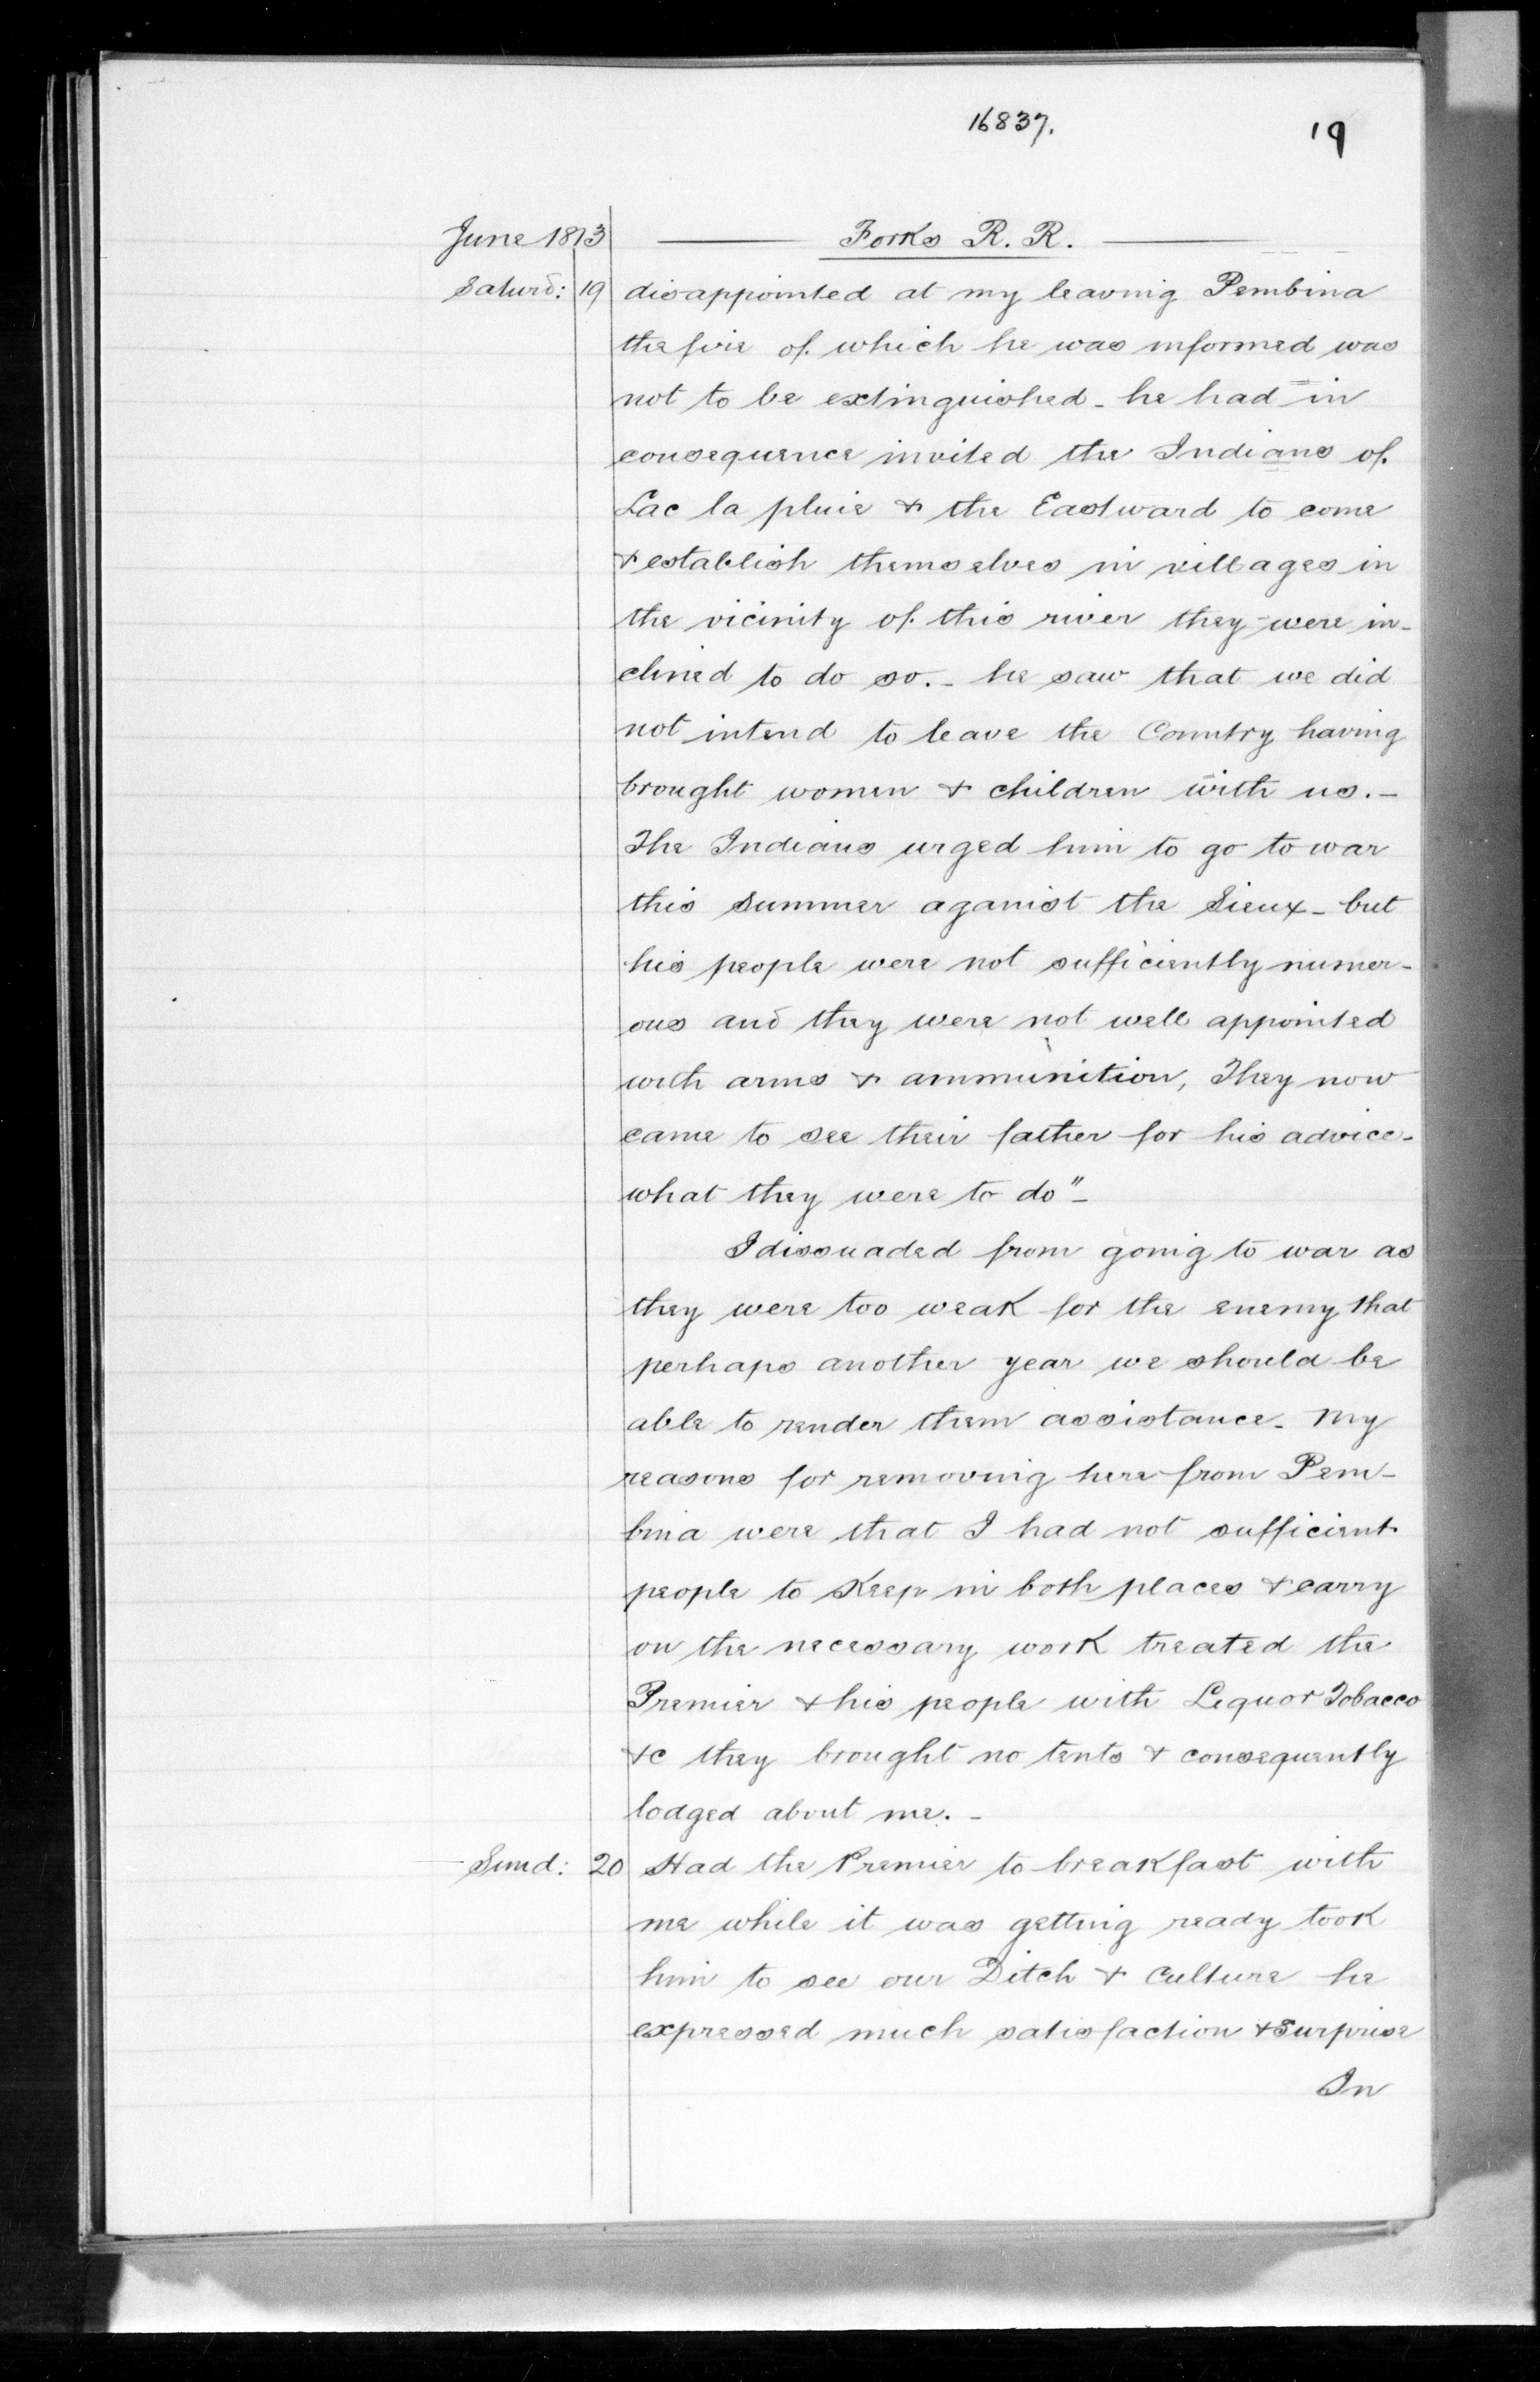 16837. 19
June 1813 Forks R. R.
Saturd: 19 disappointed at my leaving Pembina
the fire of which he was informed was
not to be extinguished - he had in
consequence invited the Indians of
Lac la pluie & the Eastward to come
& establish themselves in villages in
the vicinity of this river they were in-
clined to do so. - he saw that we did
not intend to leave the Country having
brought women & children with us. -
The Indians urged him to go to war
this summer against the Sieux - but
his people were not sufficiently numer-
ous and they were not well appointed
with arms & ammunition, They now
came to see their father for his advice -
what they were to do" -
I dissuaded from going to war as
they were too weak for the enemy that
perhaps another year we should be
able to render them assistance - My
reasons for removing here from Pem-
bina were that I had not sufficient
people to Keep in both places & carry
on the necessary work treated the
Premier & his people with Liquor Tobacco
&c they brought no tents & consequently
lodged about me. -
Sund: 20 Had the Premier to breakfast with
me while it was getting ready took
him to see our Ditch & Culture he
expressed much satisfaction & Surprise
In